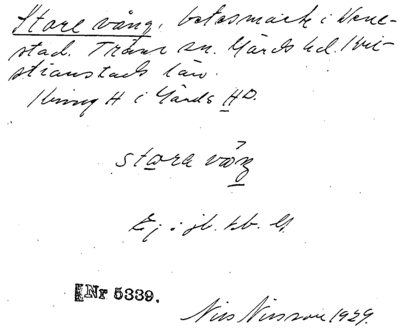 Store vång, betesmark i Vene-
stad. Träne sn. Gärds hd. Kri-
stianstads län.
i Gärds HD.
stora våŋ
Ej i jb.
Nr 5339.
Nils Nilsson 1929.